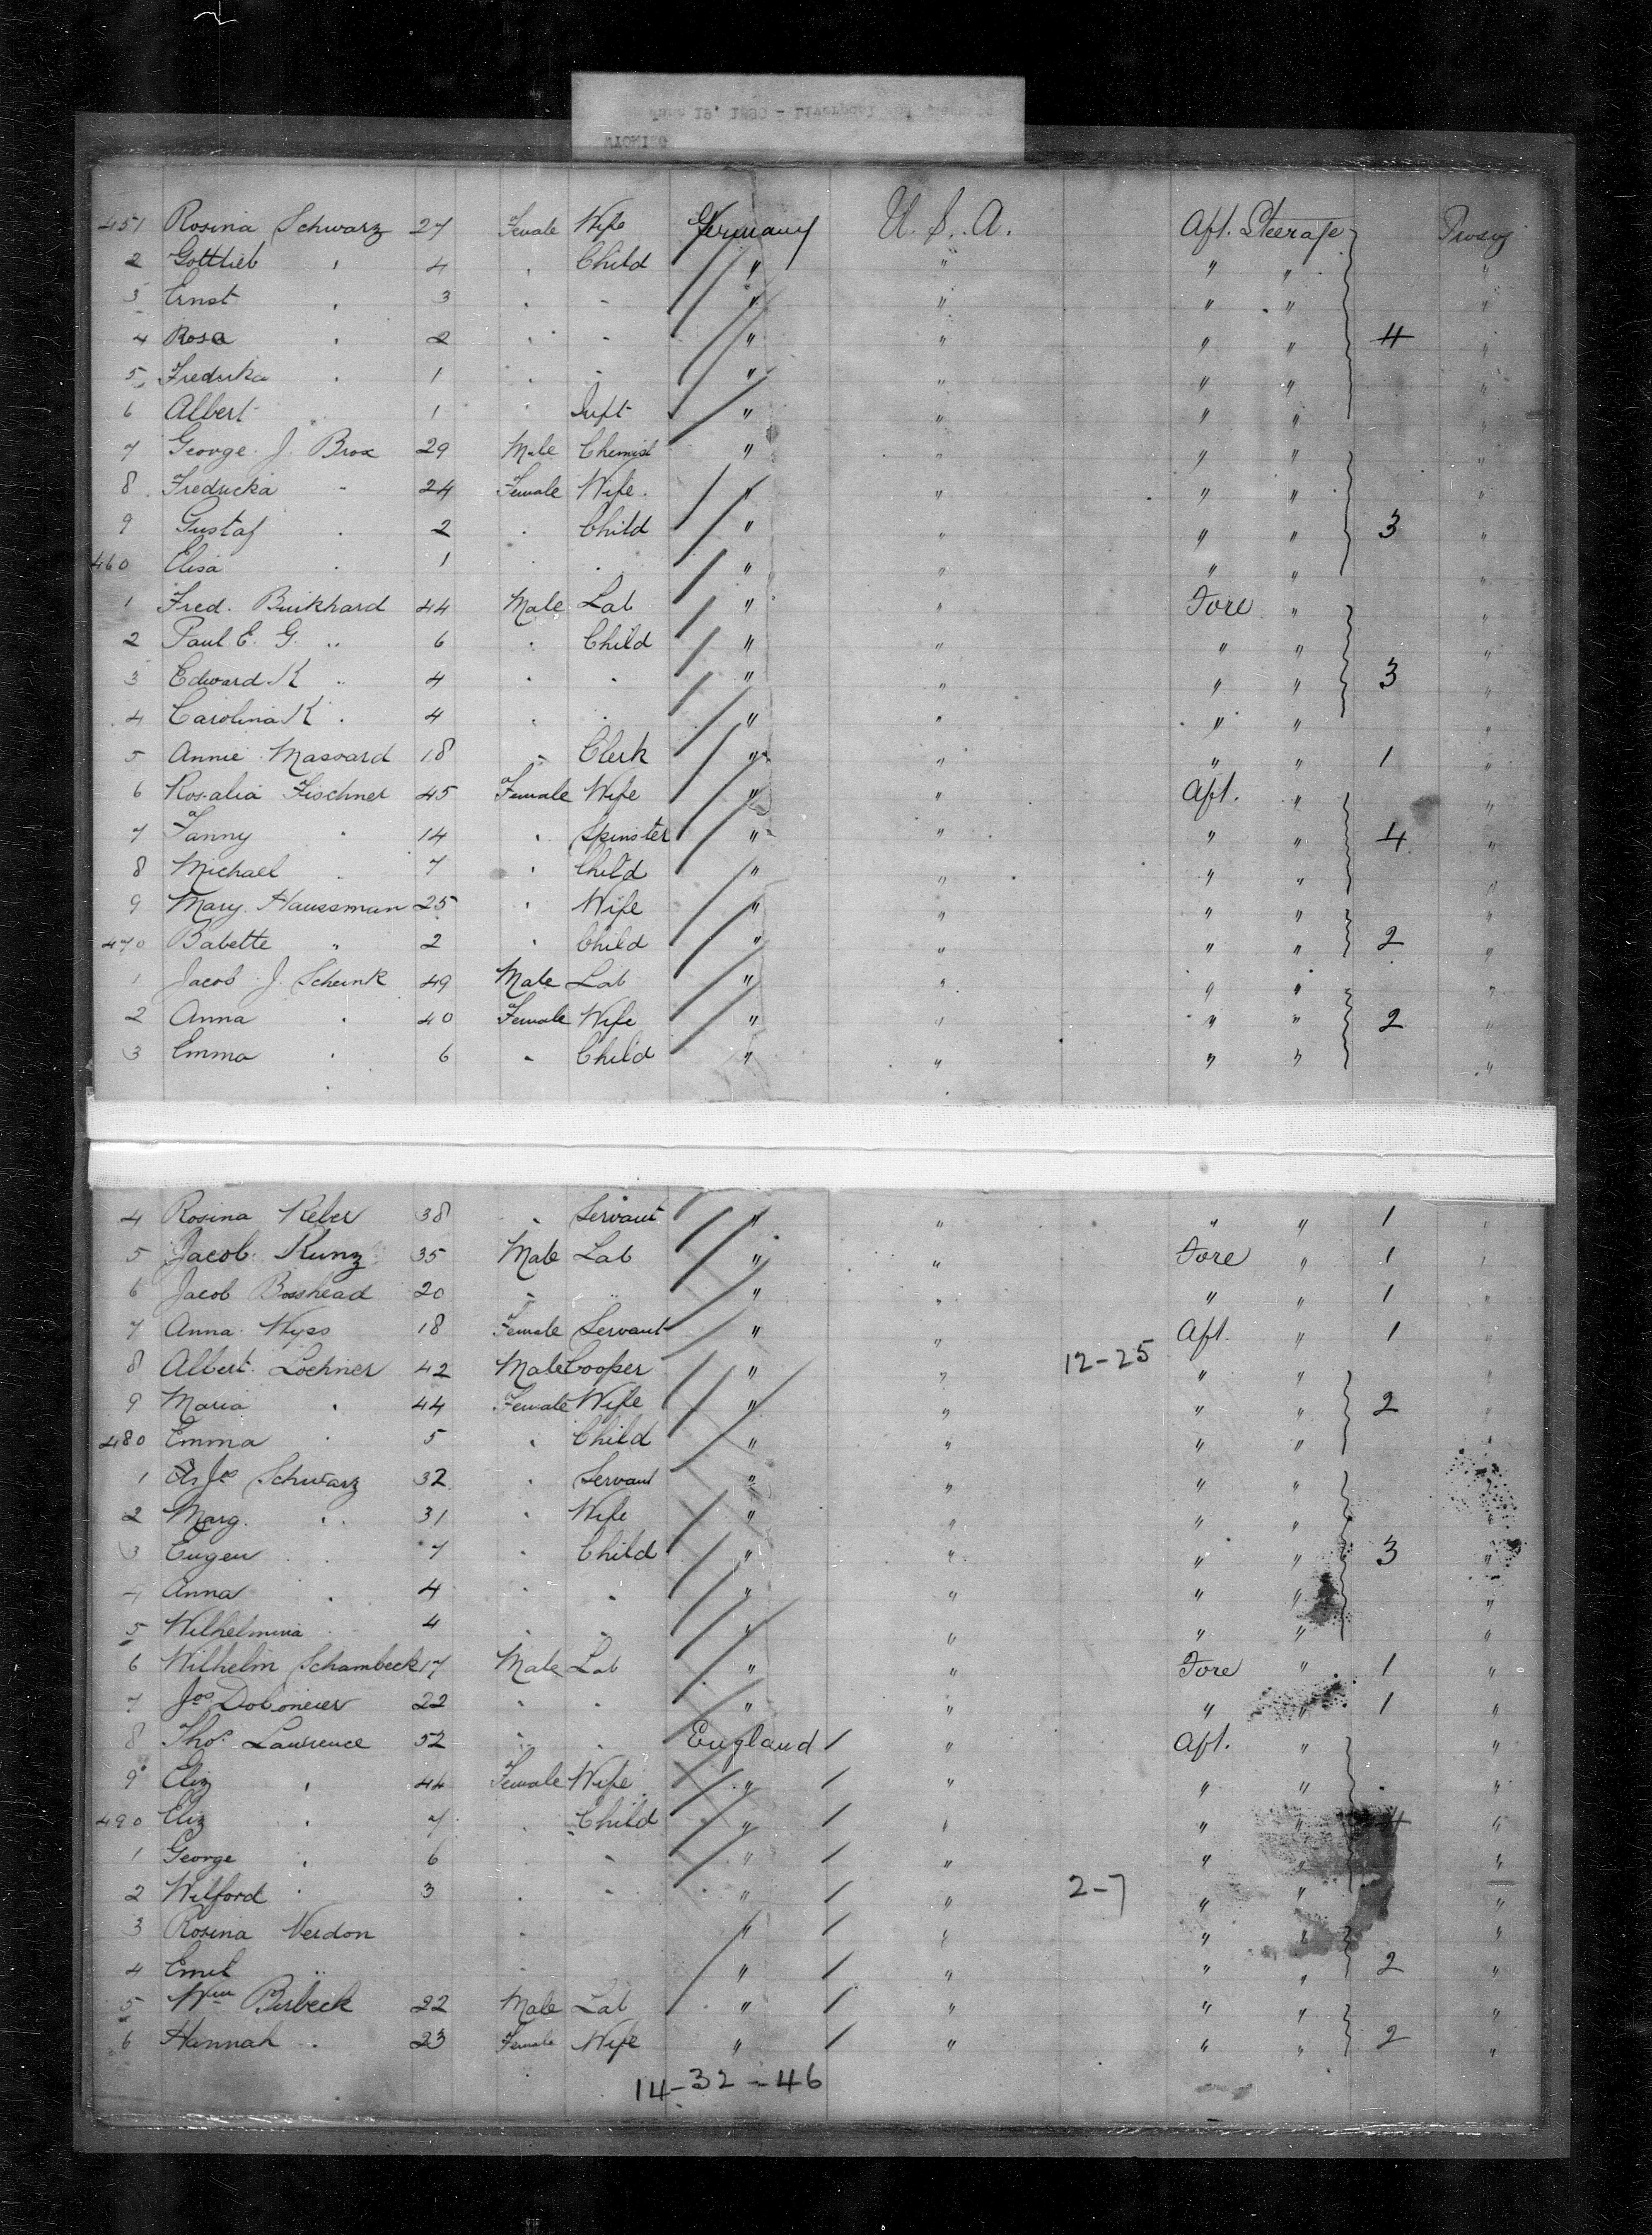 451 Rosina Schwarz 27 Female Wife Germany U. S. A. Aft. Steerage
2 Gottlieb " 4 " Child " " " "  "
3 Ernst " 3 " " " " " " "
4 Rosa " 2 " " " " " " 4 "
5 Fredrika " 1 " " " " " " "
6 Albert " 1 " Inft " " " " "
7 George J. Brox 29 Male Chemist " " " " "
8 Fredricka " 24 Female Wife " " " " "
9 Gustaf " 2 " Child " " " " 3 "
460 Elisa " 1 " " " " " " "
1 Fred. Burkhard 44 Male Lab " " Fore " "
2 Paul E. G. " 6 " Child " " " " "
3 Edward K " 4 " " " " " " 3 "
4 Carolina K " 4 " " " " " " "
5 Annie Massard 18 " Clerk " " " " 1 "
6 Rosalia Fischner 45 Female Wife " " Aft. " "
7 Fanny " 14 " Spinster " " " " 4 "
8 Michael " 7 " Child " " " " "
9 Mary Haussman 25 " Wife " " " " "
470 Babette " 2 " Child " " " " 2 "
1 Jacob J. Schenk 49 Male Lab " " " " "
2 Anna " 40 Female Wife " " " " 2 "
3 Emma " 6 " Child " " " " "
4 Rosina Reber 38 " Servant " " " " 1 "
5 Jacob Kunz 35 Male Lab " " Fore " 1 "
6 Jacob Bosshead 20 " " " " " " 1 "
7 Anna Wyss 18 Female Servant " " Aft. " 1 "
8 Albert Lochner 42 Male Cooper " " 12-25 " " "
9 Maria " 44 Female Wife " " " " 2 "
480 Emma " 5 " Child " " " " "
1 Schwarz 32 " Servant " " " " "
2 Marg. " 31 " Wife " " " " "
3 Eugen " 7 " Child " " " " 3 "
4 Anna " 4 " " " " " " "
5 Wilhelmina " 4 " " " " " " "
6 Wilhelm Schambeck 17 Male Lab " " Fore " 1 "
7 Jos 22 " " " " " " 1 "
8 Thos. Lawrence 52 " " England " Aft. " "
9 Eliz " 44 Female Wife " " " " "
490 Eliz " 7 " Child " " " " 4 "
1 George " 6 " " " " " " "
2 Wilford " 3 " " " " 2-7 " " "
3 Rosina Verdon " " " " "
4 Emil " " " " " 2 "
5 Wm Birbeck 22 Male Lab " " " " "
6 Hannah " 23 Female Wife " " " " 2 "
14-32-46